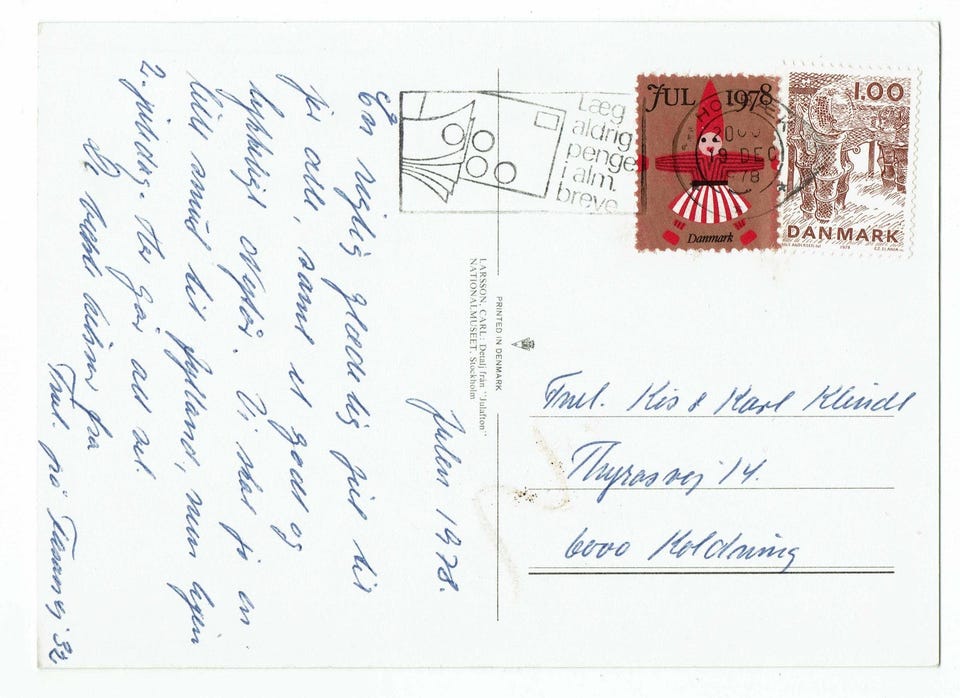 Julen 1978.
En rigtig glædelig jul til
jer alle, samt et godt og
lykkeligt nytår. Vi skal jo en
lille smut til Jylland, men hjem
2. juledag. Her går alt vel.
De bedste hilsner fra
Fam. på 32
Læg
aldrig
penge
i alm.
breve
JUL 1978
Danmark
1.00
DANMARK
1978
CZ. SLANIA
19 DEC
78
PRINTED IN DENMARK
LARSSON, CARL: Detalj från "Julafton"
NATIONALMUSEET, Stockholm
Fam. Kis & Karl
Thyrasvej 14.
6000 Kolding